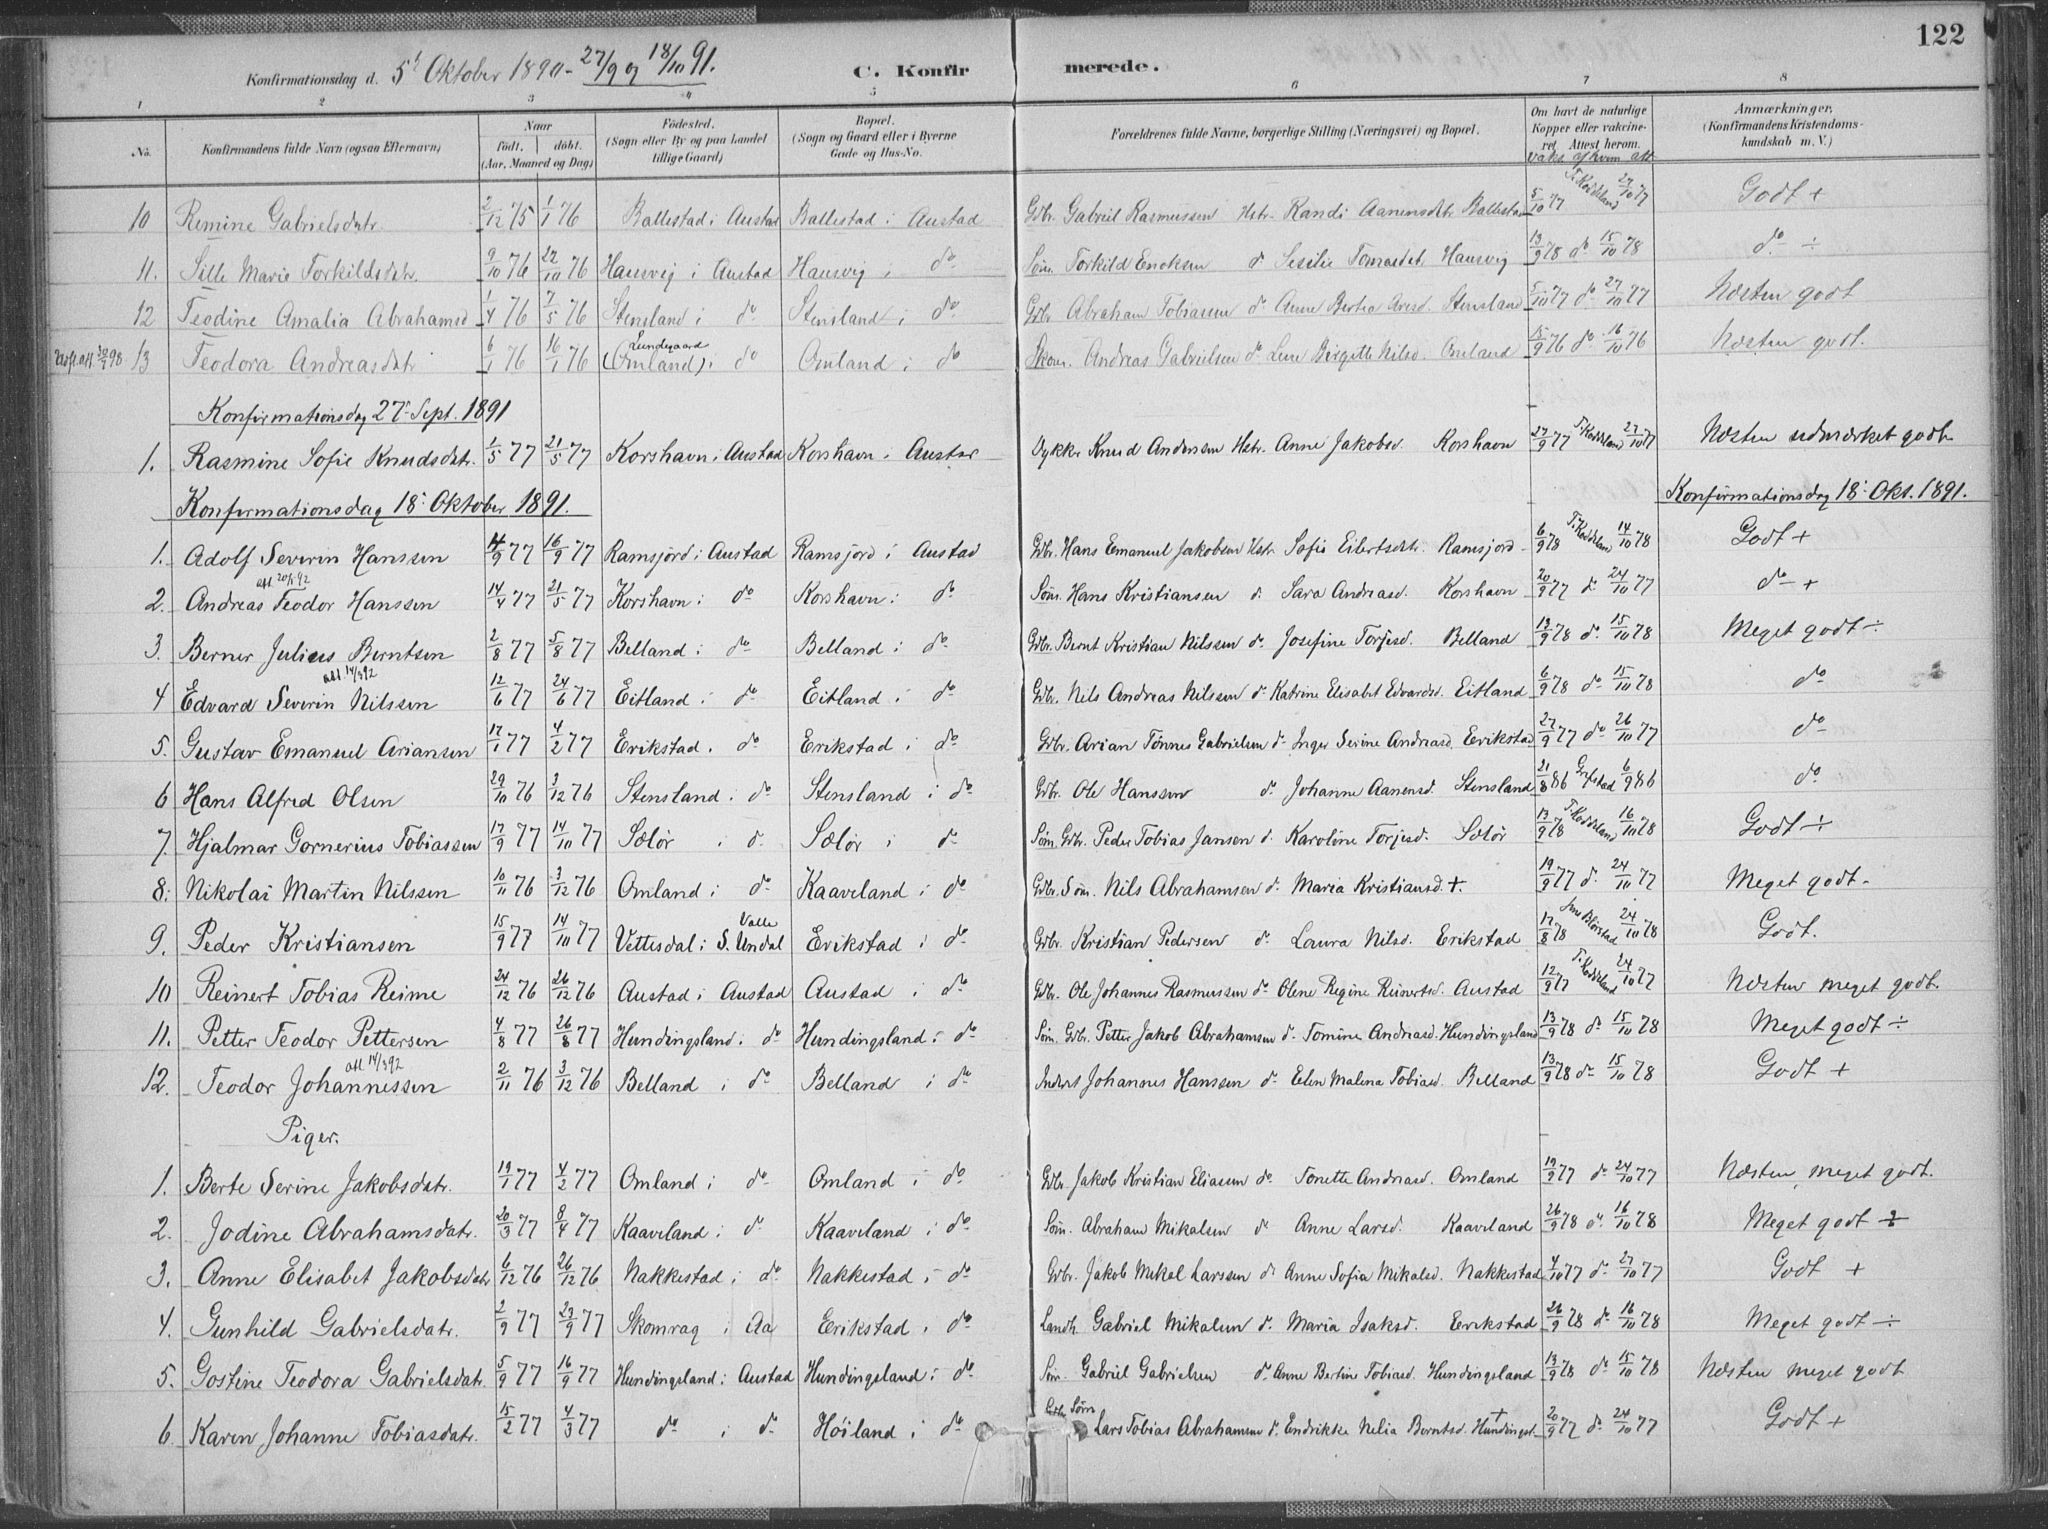 122
Konfirmationsdag d. 5t Oktober 1890 - 27/9 og 18/10 91.
C. Konfirmerede.
1 2 3 4 5 6 7 8
No. Konfirmandens fulde Navn (ogsaa Efternavn) Naar født. døbt. (Aar, Maaned og Dag) Fødested. (Sogn eller By og paa Landet tillige Gaard) Bopæl. (Sogn og Gaard eller i Byerne Gade og Hus-No. Forældrenes fulde Navne, borgerlige Stilling (Næringsvei) og Bopæl. Om havt de naturlige Kopper eller vakcineret. Attest herom. vaks. af hvem att. Anmærkninger. (Konfirmandens Kristendomskundskab m. V.)
10 Remine Gabrielsdatr. 2/12 75 1/1 76 Ballestad i Austad Ballestad i Austad Gdbr. Gabriel Rasmussen Hstr. Randi Aanensdtr. Ballestad 5/10 77 T. Koddeland 27/10 77 Godt +
11. Sille Marie Torkildsdatr. 9/10 76 22/10 76 Hausvig i Austad Hausvig i do Søm. Torkild Encksen do Sesilie Tomasdt. Hausvig 13/9 78 do 15/10 78 do ÷
12 Teodine Amalia Abrahamsd 1/4 76 7/5 76 Stensland i do Stensland i do Gdbr. Abraham Tobiassen do Anne Bertea Aresd. Stensland 5/10 77 do 27/10 77 Næsten godt
13 Teodora Andreasdatr 6/1 76 16/1 76 Lundegaard (Omland) i do Omland i do Skom. Andreas Gabrielsen do Lene Birgitte Nilsd. Omland 15/9 76 do 16/10 76 Næsten godt.
Konfirmationsdag 27. Sept. 1891
1. Rasmine Sofie Knudsdatr. 1/5 77 21/5 77 Korshavn i Austad Korshavn i Austad Dykker Knud Andersen Hstr. Anne Jakobsd. Korshavn 27/9 77 T. Koddeland 27/10 77 Næsten udmærket godt
Konfirmationsdag 18. Oktober 1891. Konfirmationsdag 18. Okt. 1891.
1. Adolf Severin Hanssen 4/9 77 16/9 77 Ramsjord i Austad Ramsjord i Austad Gdbr. Hans Emanuel Jakobsen Hstr. Sofie Eilertsdtr. Ramsjord 6/9 78 T. Koddeland 14/10 78 Godt +
att. 20/1 92
2. Andreas Teodor Hanssen 14/4 77 21/5 77 Korshavn i do Korshavn i do Søm. Hans Kristiansen do Sara Andreasd. Korshavn 20/9 77 do 24/10 77 do +
3. Berner Julius Berntsen 2/8 77 5/8 77 Belland i do Belland i do Gdbr. Bernt Kristian Nilssen do Josefine Torjesd. Belland 13/9 78 do 15/10 78 Meget godt ÷
att. 14/3 92
4 Edvard Severin Nilssen 12/6 77 24/6 77 Eitland i do Eitland i do Gdbr. Nils Andreas Nilssen do Katrine Elisabet Edvardsd. Eitland 6/9 78 do 15/10 78 do
5. Gustav Emanuel Ariansen 17/1 77 4/2 77 Erikstad i do Erikstad i do Gdbr. Arian Tønnes Gabrielsen do Inger Serine Andreasd. Eerikstad 27/9 77 do 26/10 77 do
6 Hans Alfred Olsen 29/10 76 3/12 76 Stensland i do Stensland i do Gdbr. Ole Hanssen do Johanne Aanensd. Stensland 21/8 86 6/9 86 do
7. Hjalmar Gornerius Tobiassen 17/9 77 14/10 77 Sælør i do Sælør i do Søm. Gdbr. Peder Tobias Jansen do Karoline Torjesd. Sælør 13/9 78 T. Koddeland 16/10 78 Godt ÷
8. Nikolai Martin Nilssen 10/11 76 3/12 76 Omland i do Kaaveland i do Gdbr. Søm. Nils Abrahamsen do Maria Kristiansd. +. 19/9 77 do 24/10 77 Meget godt
9. Peder Kristiansen 15/9 77 14/10 77 Vettesdal i Valle S. Undal Erikstad i do Gdbr. Kristian Pedersen do Laura Nilsd. Erikstad 17/8 78 24/10 78 Godt.
10 Reinert Tobias Reime 24/12 76 26/12 76 Austad i Austad Austad i do Gdbr. Ole Johannes Rasmussen do Olene Regine Reinertsd. Austad 12/9 77 T. Koddeland 24/10 77 Næsten meget godt.
11. Petter Teodor Pettersen 4/8 77 26/8 77 Hundingsland i do Hundingsland i do Søm. Gdbr. Petter Jakob Abrahamsen do Tomine Andreasd. Hundingsland 13/9 78 do 15/10 78 Meget godt ÷
att. 14/3 92
12. Teodor Johannessen 2/11 76 3/12 76 Belland i do Belland i do Inderst Johannes Hanssen do Elen Malena Tobiasd. Belland 13/9 78 do 15/10 78 Godt +
Piger.
1. Berte Serine Jakobsdatr. 19/1 77 4/2 77 Omland i do Omland i do Gdbr. Jakob Kristian Eliassen do Tonette Andreasd. Omland 19/9 77 do 24/10 77 Næsten meget godt.
2. Jodine Abrahamsdatr. 20/3 77 8/4 77 Kaaveland i do Kaaveland i do Søm. Abraham Mikalsen do Anne Larsd. Kaaveland 26/9 78 do 16/10 78 Meget godt ÷
3. Anne Elisabet Jakobsdatr 6/12 76 26/12 76 Nakkestad i do Nakkestad i do Gdbr. Jakob Mikal Larssen do Anne Sofia Mikalsd. Nakkestad 4/10 77 do 27/10 77 Godt +
4. Gunhild Gabrielsdatr. 2/9 77 23/9 77 Skomrag i Aa Erikstad i do Landh. Gabriel Mikalsen do Maria Isaksd. Eerikstad 26/9 78 do 16/10 78 Meget godt ÷
5. Gostine Teodora Gabrielsdatr. 5/9 77 16/9 77 Hundingsland i Austad Hundingsland i do Søm. Gabriel Gabrielsen do Anne Bertine Tobiasd. Hundingsland 13/9 78 do 15/10 78 Næsten meget godt
6. Karen Johanne Tobiasdatr. 15/2 77 4/3 77 do i do Høiland i do Gdbr. Søm Lars Tobias Abrahamsen do Endrikke Nelia Berntsd. + Hundingsl. 20/9 77 do 24/10 77 Godt +